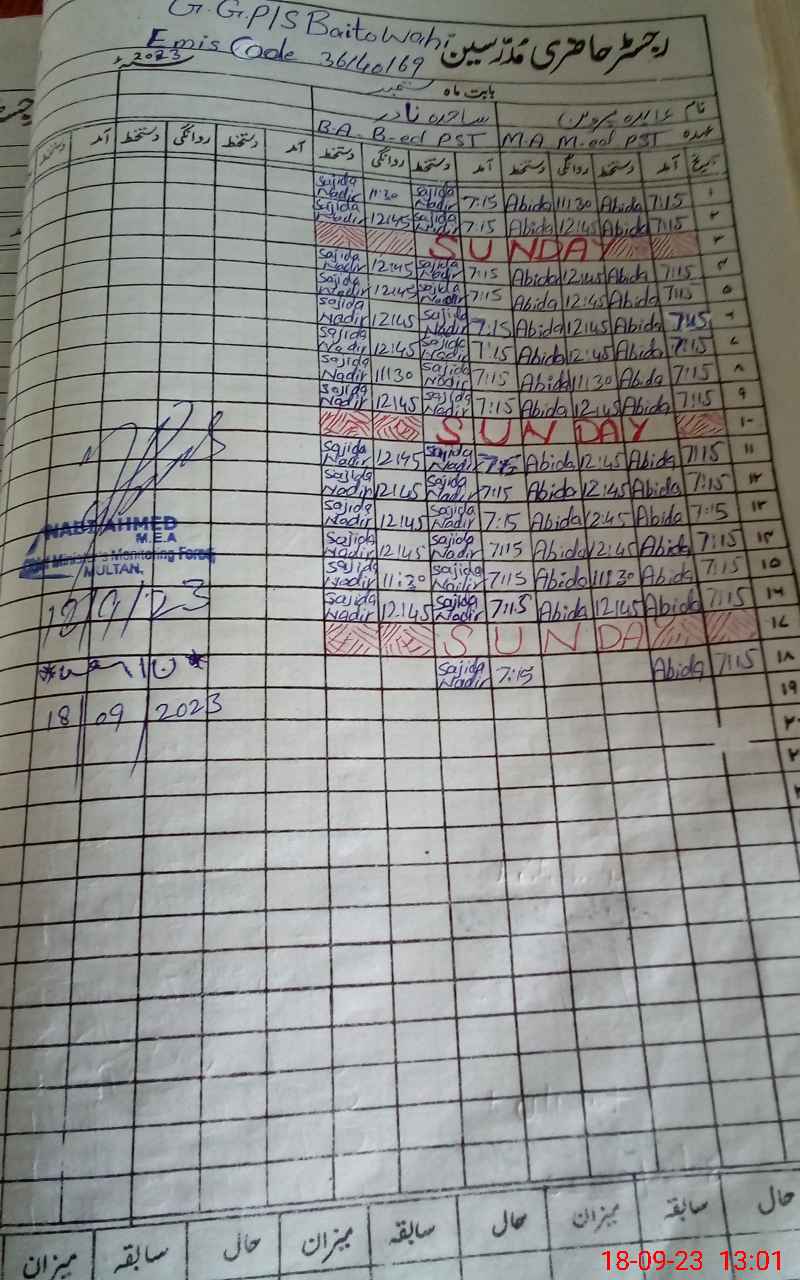 G.G.P/S Baitowahi
Emis Code 36140169
رجسٹر حاضری مدرسین
2023ء
بابت ماہ ستمبر
نام عابدہ پروین ساجدہ نادر
عہدہ M.A M.ed PST B.A. B-ed PST
تاریخ آمد دستخط روانگی دستخط آمد دستخط روانگی دستخط آمد دستخط روانگی دستخط آمد
۱ 7:15 Abida 11:30 Abida 7:15 Sajida Nadir 11:30 Sajida Nadir
۲ 7:15 Abida 12:45 Abida 7:15 Sajida Nadir 12:45 Sajida Nadir
۳ SUNDAY
۴ 7:15 Abida 12:45 Abida 7:15 Sajida Nadir 12:45 Sajida Nadir
۵ 7:15 Abida 12:45 Abida 7:15 Sajida Nadir 12:45 Sajida Nadir
۶ 7:15 Abida 12:45 Abida 7:15 Sajida Nadir 12:45 Sajida Nadir
۷ 7:15 Abida 12:45 Abida 7:15 Sajida Nadir 12:45 Sajida Nadir
۸ 7:15 Abida 11:30 Abida 7:15 Sajida Nadir 11:30 Sajida Nadir
۹ 7:15 Abida 12:45 Abida 7:15 Sajida Nadir 12:45 Sajida Nadir
۱۰ SUNDAY
۱۱ 7:15 Abida 12:45 Abida 7:15 Sajida Nadir 12:45 Sajida Nadir
۱۲ 7:15 Abida 12:45 Abida 7:15 Sajida Nadir 12:45 Sajida Nadir
۱۳ 7:15 Abida 12:45 Abida 7:15 Sajida Nadir 12:45 Sajida Nadir
۱۴ 7:15 Abida 12:45 Abida 7:15 Sajida Nadir 12:45 Sajida Nadir
۱۵ 7:15 Abida 11:30 Abida 7:15 Sajida Nadir 11:30 Sajida Nadir
۱۶ 7:15 Abida 12:45 Abida 7:15 Sajida Nadir 12:45 Sajida Nadir
۱۷ SUNDA
۱۸ 7:15 Abida 7:15 Sajida Nadir
۱۹
NABI AHMED
M.E.A
Chief Minister's Monitoring Force
MULTAN.
18/9/23
18/09/2023
حال سابقہ میزان حال سابقہ میزان حال سابقہ میزان
18-09-23 13:01